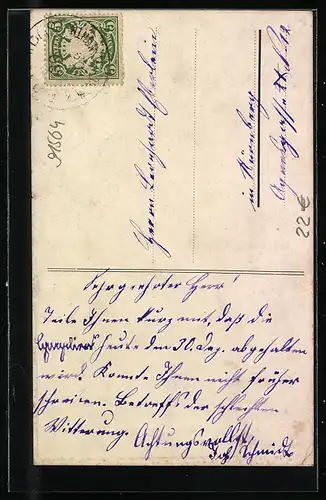 91864
22 €
5
Herrn Leonhard
in Nürnberg
Sehr geehrter Herr!
Teile Ihnen kurz mit, daß die
heute den 30. Dez. abgehalten
wird. Konnte Ihnen nicht früher
schreiben. Betreffs der schlechten
Witterung. Achtungsvollst
Joh. Schmidt